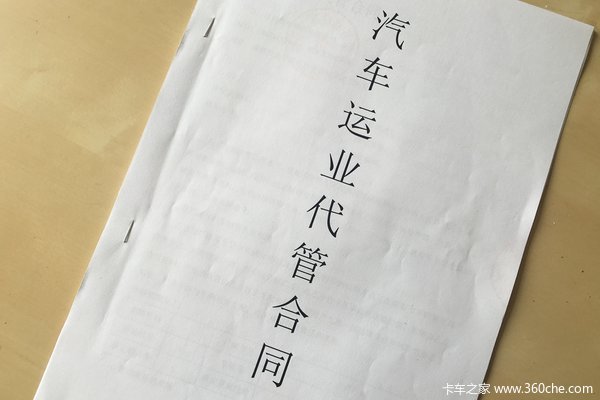 汽车运业代管合同
卡车之家 www.360che.com